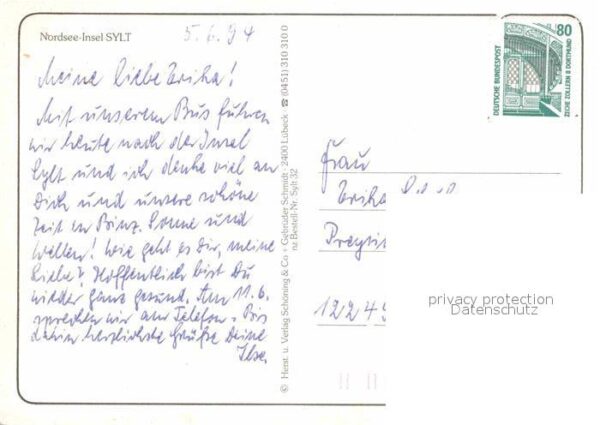 Nordsee-Insel SYLT
5.6.94
Meine liebe Erika!
Mit unserem Bus fuhren
wir heute nach der Insel
Sylt und ich denke viel an
Dich und unsere schöne
Zeit in Binz. Sonne und
Wellen! Wie geht es Dir, meine
Liebe? Hoffentlich bist Du
wieder ganz gesund. Am 11.6.
sprechen wir am Telefon. Bis
dahin herzlichste Grüße Deine
Ilse.
© Herst. u. Verlag Schöning & Co + Gebrüder Schmidt · 2400 Lübeck ☎ (0451) 310 310 0
nz Bestell-Nr. Sylt 32
80
DEUTSCHE BUNDESPOST
ZECHE ZOLLERN II DORTMUND
Frau
Erika
1224
privacy protection
Datenschutz